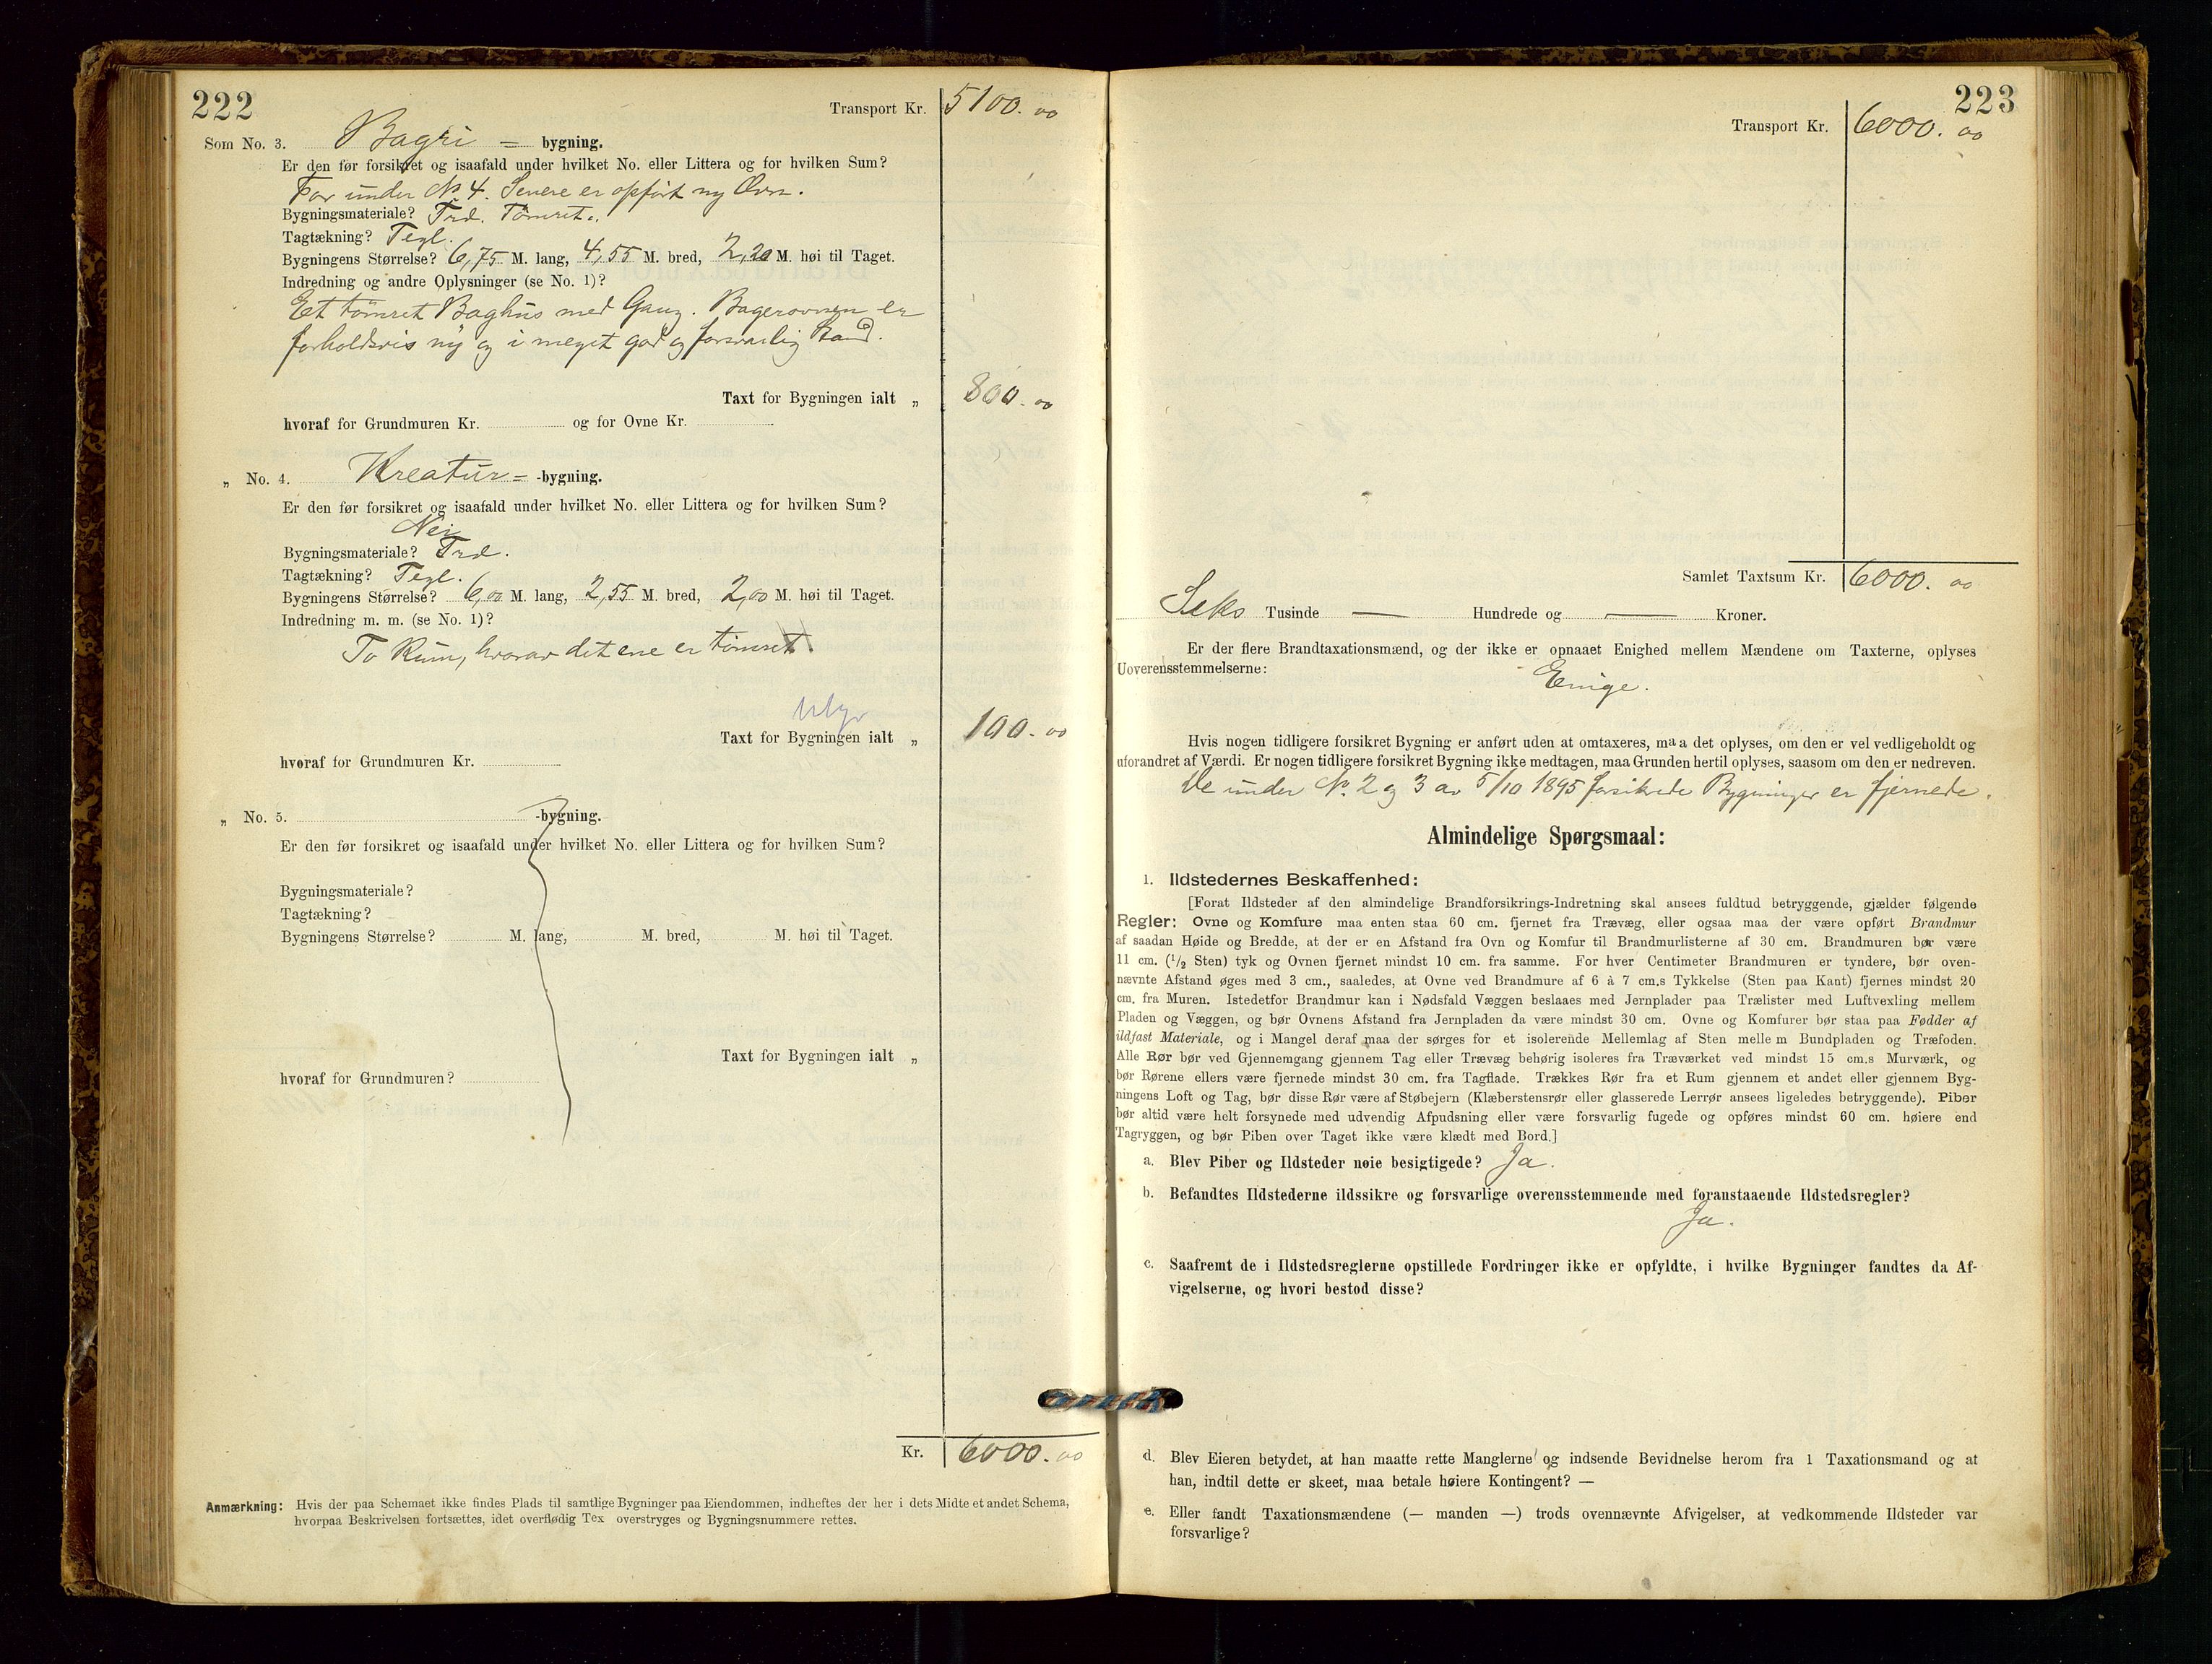 222
Transport Kr. 5100.00
Som No. 3. Bagri = bygning.
Er den før forsikret og isaafald under hvilket No. eller Littera og for hvilken Sum?
For under No 4. Senere er opført ny Ovn.
Bygningsmateriale? Træ. Tømret.
Tagtækning? Tegl.
Bygningens Størrelse? 6,75 M. lang, 4,55 M. bred, 2,20 M. høi til Taget.
Indredning og andre Oplysninger (se No. 1)?
Et tømret Baghus med Gang. Bagerovnen er
forholdsvis ny og i meget god og forsvarlig Stand.
Taxt for Bygningen ialt „ 800.00
hvoraf for Grundmuren Kr. og for Ovne Kr.
„ No. 4. Kreatur= -bygning.
Er den før forsikret og isaafald under hvilket No. eller Littera og for hvilken Sum?
Nei
Bygningsmateriale? Træ.
Tagtækning? Tegl.
Bygningens Størrelse? 6,00 M. lang, 2,55 M. bred, 2,00 M. høi til Taget.
Indredning m. m. (se No. 1)?
To Rum, hvorav det ene er tømret.
Taxt for Bygningen ialt „ 100.00
hvoraf for Grundmuren Kr.
„ No. 5. -bygning.
Er den før forsikret og isaafald under hvilket No. eller Littera og for hvilken Sum?
Bygningsmateriale?
Tagtækning?
Bygningens Størrelse? M. lang, M. bred, M. høi til Taget.
Taxt for Bygningen ialt „
hvoraf for Grundmuren?
Kr. 6000.00
Anmærkning: Hvis der paa Schemaet ikke findes Plads til samtlige Bygninger paa Eiendommen, indheftes der her i dets Midte et andet Schema,
hvorpaa Beskrivelsen fortsættes, idet overflødig Tex overstryges og Bygningsnummere rettes.
223
Transport Kr. 6000.00
Samlet Taxtsum Kr. 6000.00
Seks Tusinde — Hundrede og — Kroner.
Er der flere Brandtaxationsmænd, og der ikke er opnaaet Enighed mellem Mændene om Taxterne, oplyses
Uoverensstemmelserne:
Enige.
Hvis nogen tidligere forsikret Bygning er anført uden at omtaxeres, maa det oplyses, om den er vel vedligeholdt og
uforandret af Værdi. Er nogen tidligere forsikret Bygning ikke medtagen, maa Grunden hertil oplyses, saasom om den er nedreven.
De under No. 2 og 3 av 5/10 1895 forsikrede Bygninger er fjernede.
Almindelige Spørgsmaal:
1. Ildstedernes Beskaffenhed:
[Forat Ildsteder af den almindelige Brandforsikrings-Indretning skal ansees fuldtud betryggende, gjælder følgende
Regler: Ovne og Komfure maa enten staa 60 cm. fjernet fra Trævæg, eller ogsaa maa der være opført Brandmur
af saadan Høide og Bredde, at der er en Afstand fra Ovn og Komfur til Brandmurlisterne af 30 cm. Brandmuren bør være
11 cm. (1/2 Sten) tyk og Ovnen fjernet mindst 10 cm. fra samme. For hver Centimeter Brandmuren er tyndere, bør oven-
nævnte Afstand øges med 3 cm., saaledes, at Ovne ved Brandmure af 6 à 7 cm.s Tykkelse (Sten paa Kant) fjernes mindst 20
cm. fra Muren. Istedetfor Brandmur kan i Nødsfald Væggen beslaaes med Jernplader paa Trælister med Luftvexling mellem
Pladen og Væggen, og bør Ovnens Afstand fra Jernpladen da være mindst 30 cm. Ovne og Komfurer bør staa paa Fødder af
ildfast Materiale, og i Mangel deraf maa der sørges for et isolerende Mellemlag af Sten mellem Bundpladen og Træfoden.
Alle Rør bør ved Gjennemgang gjennem Tag eller Trævæg behørig isoleres fra Træværket ved mindst 15 cm.s Murværk, og
bør Rørene ellers være fjernede mindst 30 cm. fra Tagflade. Trækkes Rør fra et Rum gjennem et andet eller gjennem Byg-
ningens Loft og Tag, bør disse Rør være af Støbejern (Klæberstensrør eller glasserede Lerrør ansees ligeledes betryggende). Piber
bør altid være helt forsynede med udvendig Afpudsning eller være forsvarlig fugede og opføres mindst 60 cm. høiere end
Tagryggen, og bør Piben over Taget ikke være klædt med Bord.]
a. Blev Piber og Ildsteder nøie besigtigede? Ja.
b. Befandtes Ildstederne ildssikre og forsvarlige overensstemmende med foranstaaende Ildstedsregler?
Ja.
c. Saafremt de i Ildstedsreglerne opstillede Fordringer ikke er opfyldte, i hvilke Bygninger fandtes da Af-
vigelserne, og hvori bestod disse?
d. Blev Eieren betydet, at han maatte rette Manglerne og indsende Bevidnelse herom fra 1 Taxationsmand og at
han, indtil dette er skeet, maa betale høiere Kontingent? —
e. Eller fandt Taxationsmændene (— manden —) trods ovennævnte Afvigelser, at vedkommende Ildsteder var
forsvarlige?